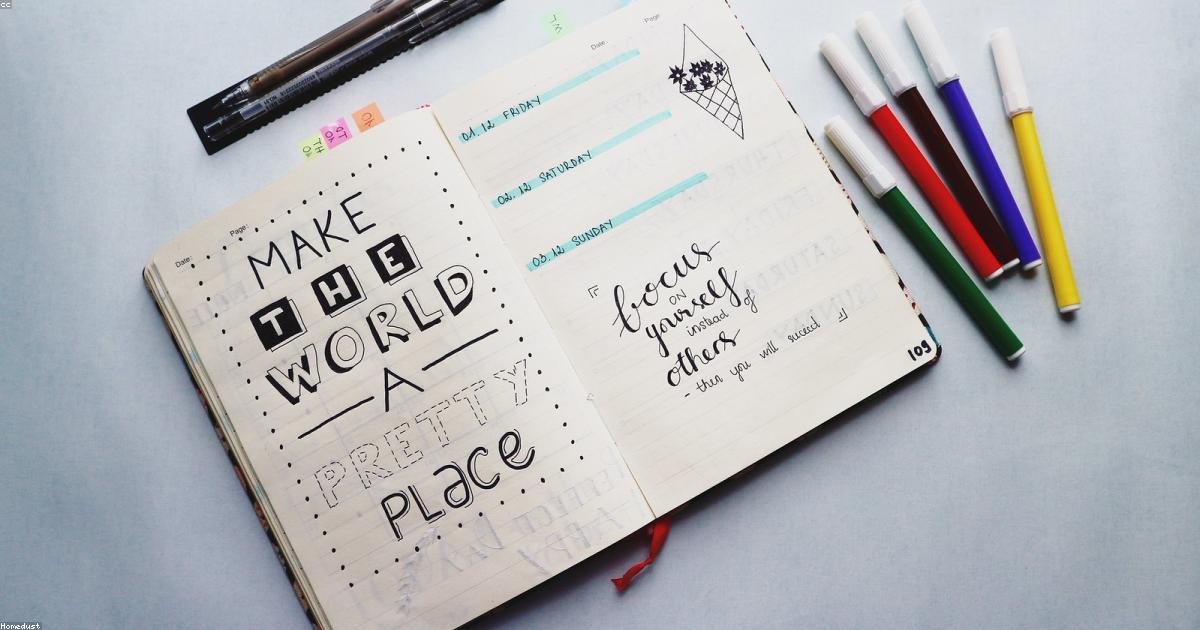 cc
Date:
Page:
MAKE
THE
WORLD
A
PRETTY
PLACE
Date:
Page
01. 12 FRIDAY
02. 12 SATURDAY
03. 12 SUNDAY
focus
on
yourself
instead of
others
- then you will succeed
109
Homedust